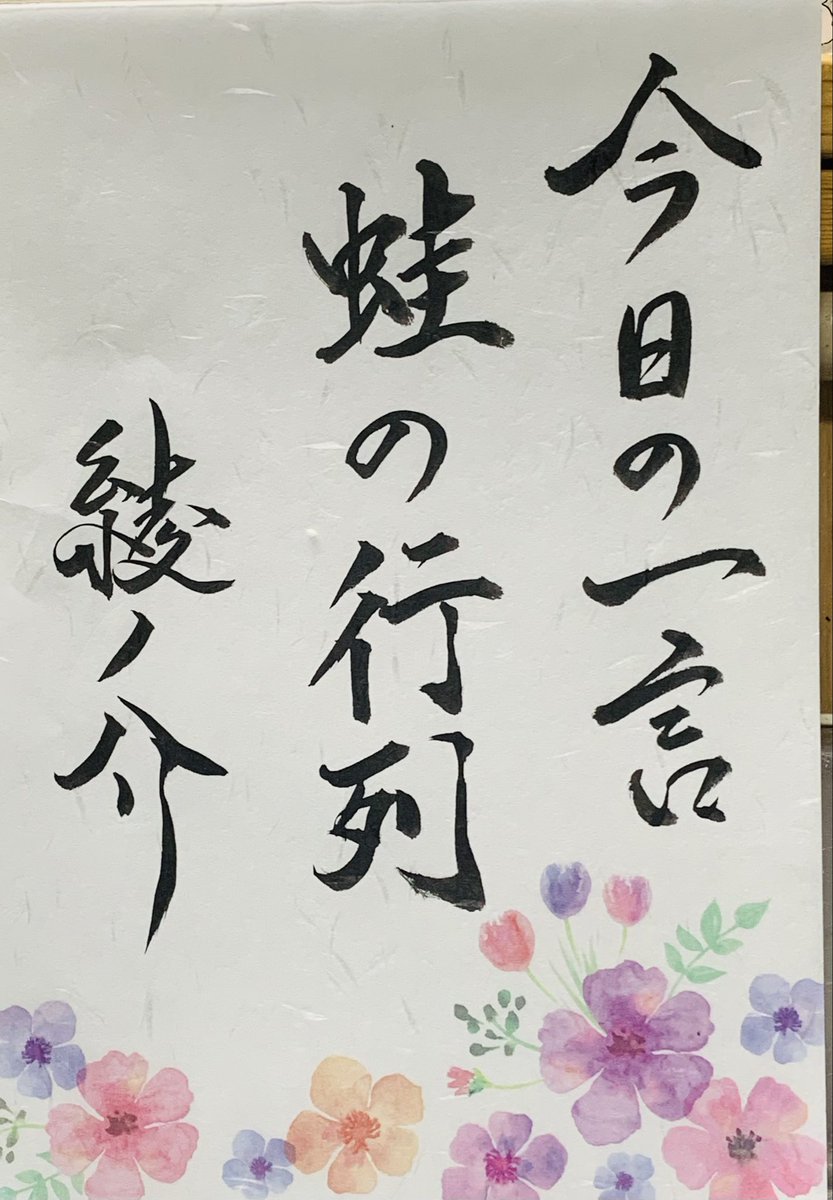 今日の一言
蛙の行列
綾ノ介